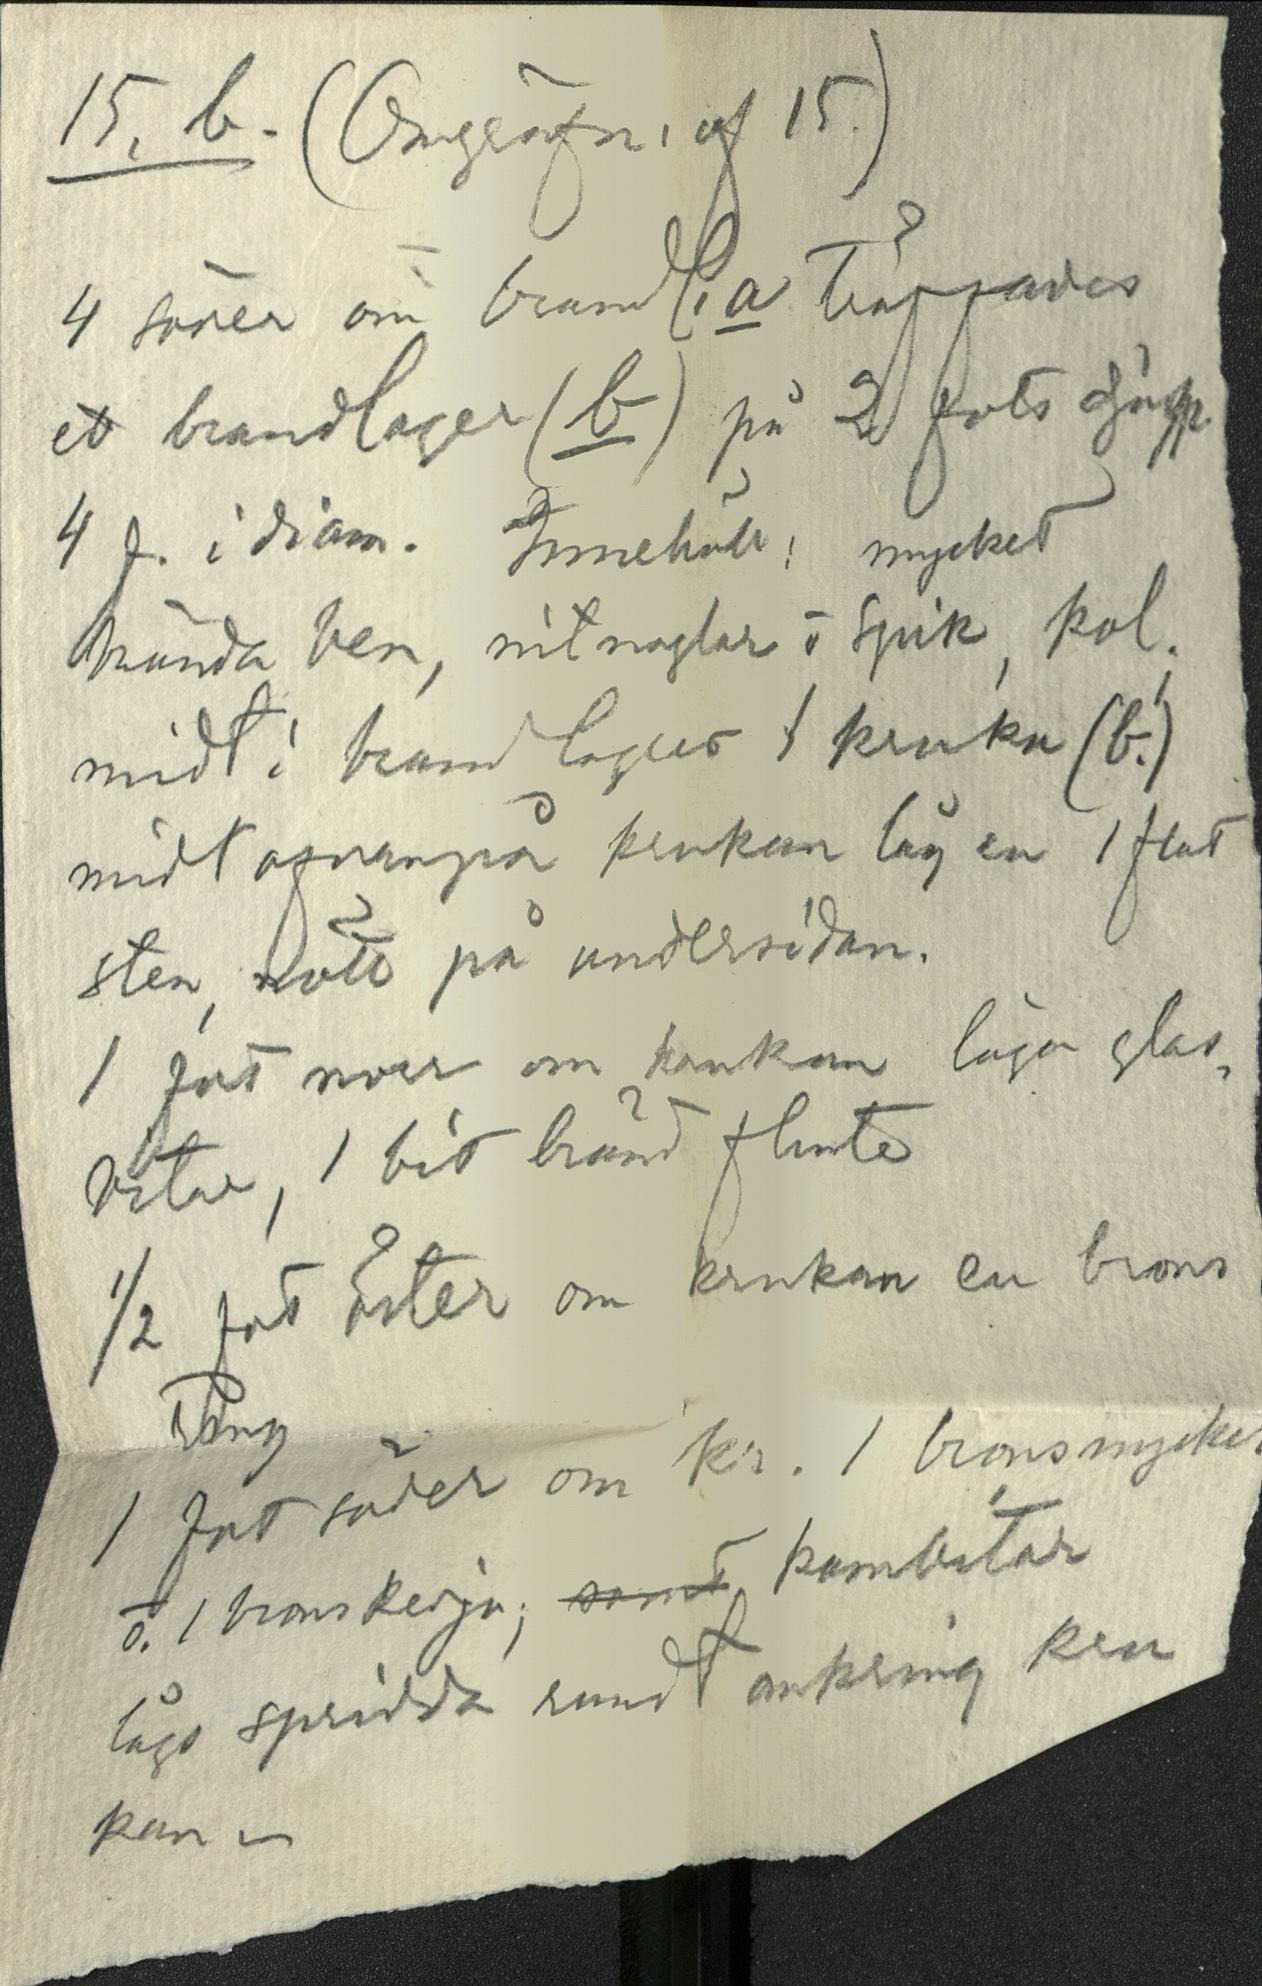 15. b. (Omgräfn. af 15.)
4 söder om brandl. a träffades
et brandlager (b) på 2 fots djup
4 f. i diam. Innehöll: mycket
brända ben, nitnaglar o spik, kol.
midt i brandlagret 1 kruka (b.)
midt ofvanpå krukan låg en 1 flat
sten, nött på undersidan.
1 fot norr om krukan låga glas,
bitar, 1 bit bränd flinta
1/2 fot öster om krukan en brons
ring
1 fot söder om kr. 1 bronsmycket
o. 1 bronskedja; samt kambitar
lågo spridda rundt omkring kru
kan